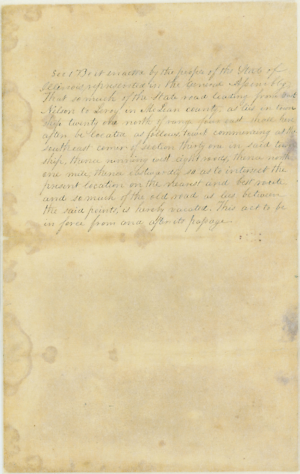 Sec 1. Be it enacted by the people of the State of
Illinois, represented in the General Assembly,
That so much of the State road leading from
to Leroy in McLean county, as lies in town
ship twenty one north of range four east shall here
after be located as follows, to wit commencing at the
south east corner of section thirty one in said town
ship, thence running east eight rods, thence north
one mile, thence so as to intersect the
present location on the nearest and best route
and so much of the old road as lies between
the said points, is hereby vacated. This act to be
in force from and after its passage.